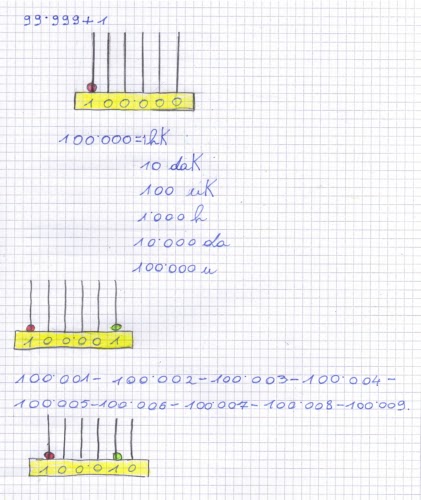 99.999+1
100.000
100.000=1hK
10 daK
100 uK
1.000 h
10.000 da
100.000 u
100.001
100.001- 100.002-100.003-100.004-
100.005-100.006-100.007-100.008-100.009.
100.010